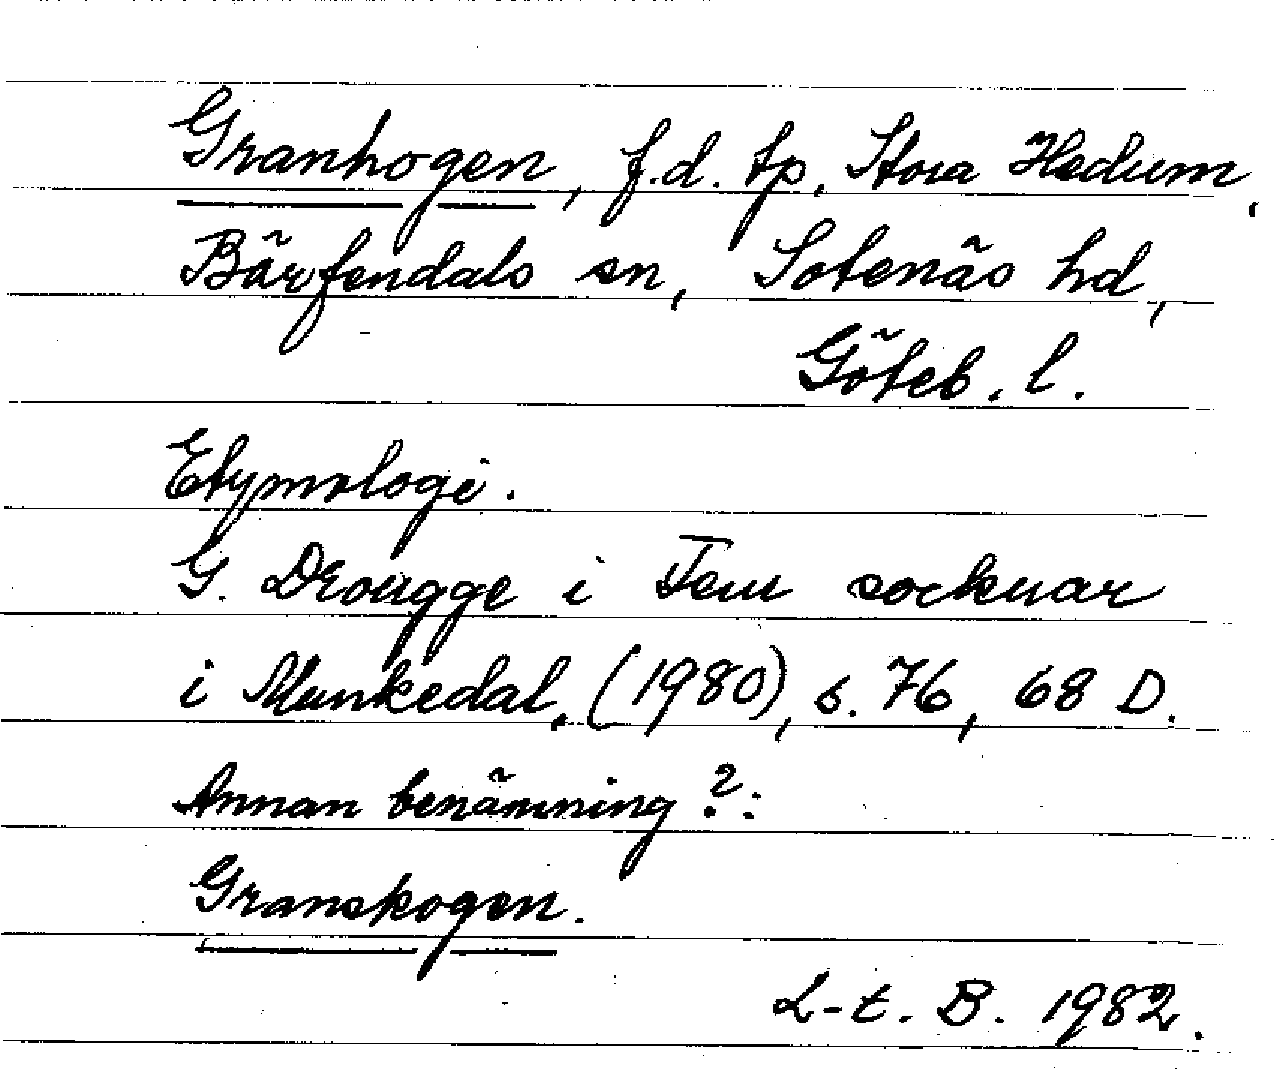 Granhogen, f.d. tp, Stora Hedum,
Bärfendals sn, Sotenäs hd,
Göteb. l.
Etymologi.
G. Drougge i Fem socknar
i Munkedal, (1980), s. 76, 68 D.
Annan benämning?:
Granskogen.
L-t. B. 1982.